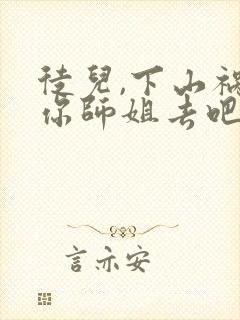 徒兒,下山禍
你師姐去吧
言亦安